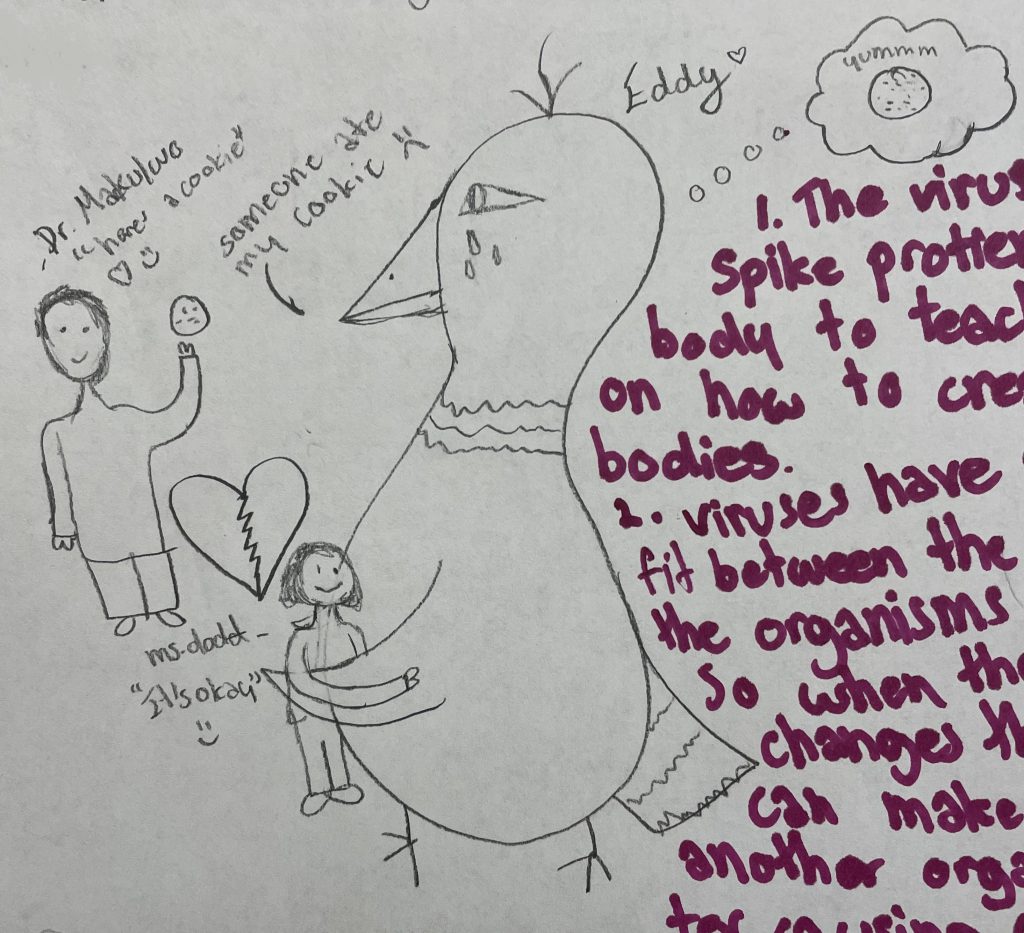 Eddy
yummm
Dr. Makulowo
"here's a cookie"
someone ate
my cookie
ms. dodd -
"It's okay"
1. The virus
Spike
body to teach
on how to cre
bodies.
2. viruses have
fit between the
the organisms
So when the
changes th
can make
another orga